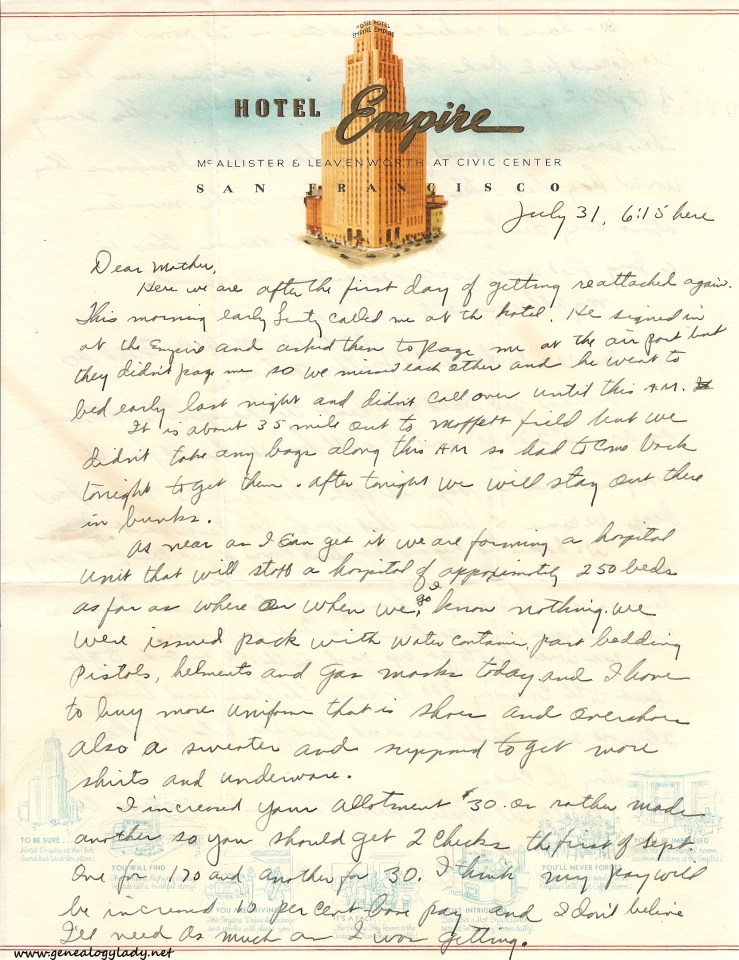 HOTEL EMPIRE
HOTEL EMPIRE
HOTEL Empire
McALLISTER & LEAVENWORTH AT CIVIC CENTER
SAN FRANCISCO
July 31, 6:15 here
Dear Mother,
Here we are after the first day of getting reattached again.
This morning early called me at the hotel. He signed in
at the Empire and asked them to page me at the air port but
they didn't page me so we missed each other and he went to
bed early last night and didn't call over until this A.M.
It is about 35 mile out to Moffett field but we
didn't take any bags along this AM so had to come back
tonight to get them. After tonight we will stay out there
in bunks.
As near as I can get it we are forming a hospital
unit that will staff a hospital of approximately 250 beds
as far as where or when we go, I know nothing. We
were issued pack with water container, part bedding
pistols, helments and gas masks today and I have
to buy more uniform that is shoes and overshoes
also a sweater and suppose to get more
shirts and underware.
I increased your allotment $30. or rather made
another so you should get 2 checks the first of Sept.
One for 170 and another for 30. I think my pay will
be increased 10 per cent base pay and I don't believe
I'll need as much as I was getting.
TO BE SURE
YOU WILL FIND
YOU ARE DRIVING
IT'S A FACT
YOU'LL NEVER FORGET
www.genealogylady.net